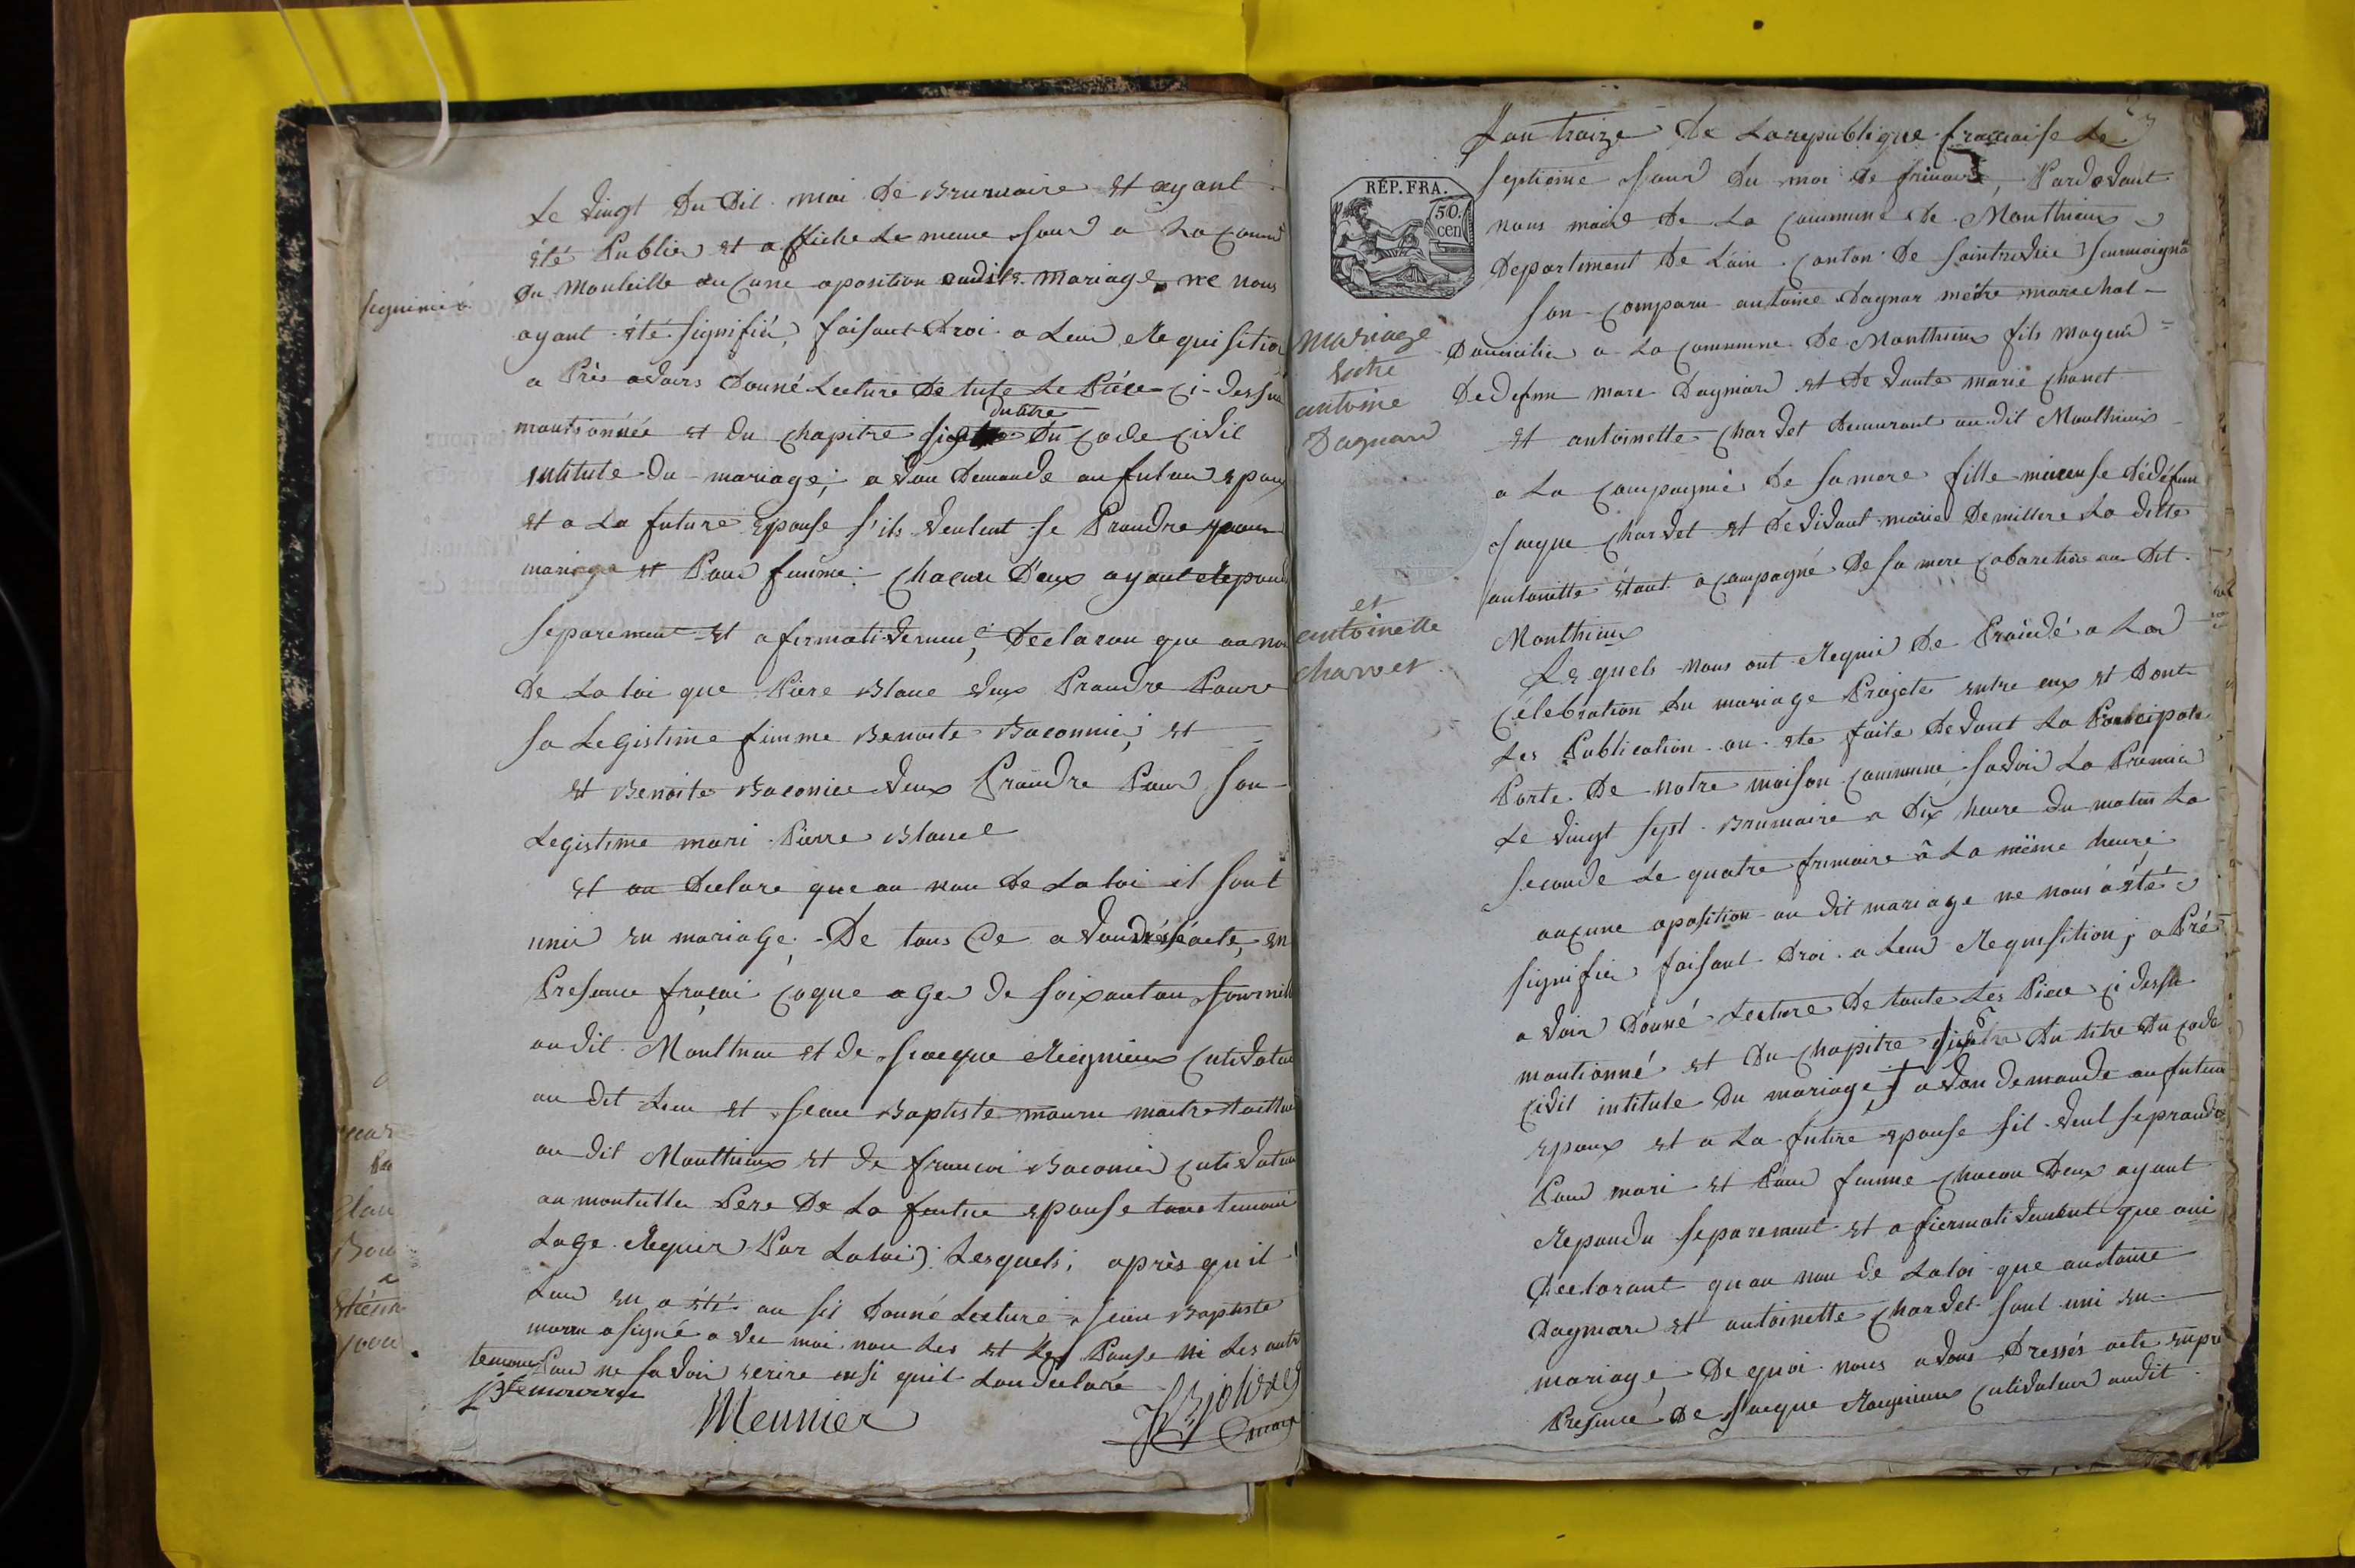 Le vingt du dit moi de Brumaire et ayant
été Publier et affiche Le meme jour a La comu
Du Monteille aucune oposition audit mariage ne nous
ayant été signifiér, faisant droi a Leur Requisition
a Près avoirs Donné Lecture de tute Le Pièce ci-dessu
mantionnée et du chapitre six du titre Du code civil
intitule du mariage; avon Demande au futur epoux
et a La future epouse s'ils veulent se Prandre pour
mariage et Pour femme: chacun D'eux ayant Repondu
separement et afirmativemen, Declaron que au non
De La loi que Piere Blanc veux Prandre Pour
sa Legistime femme Benoite Baconnier, et
et Benoite Baconier veux Prandre Pour son
Legistime mari Pierre Blanc
et an Declare que au non de La loi il sont
unir en mariage, De tous Ce avon acte, en
Presence francoi coque ager de soixantan
audit Monthieux et de Jacque Reignieux cultivateur
au dit Lieu et Jean Baptiste mouru maitre
au dit Monthieux et de francoi Baconier cultivateur
au montellier Père De La future epouse temoin
Lage Requir Par La loi) Lesquels; après quil
Leur en a été au si Donné Lecture Jean Baptiste
mouru a signé avec moi non Les et Les Pouse ni Les autre
temoin Pour ne savoir ecrire insi quil Lon declaré
Meunier
seguinié
Lan traize De La republique francaise Le
septieme Jour du moi de frimaire, Pardevant
RÉP. FRA.
50.
cen
nous maire De La commune De Monthieux
Departement De L'ain canton De saintrivié
son comparu antoine Dagnar mètre marechal
Domicilier a La commune De Monthieux fils mageur
De defun marc Dagniard et De vante marie chanet
et antoinette charvet demeurant au dit Monthieux
a La compagnie De sa mere fille mineuse de défun
Jacque charvet et De vivant marie Demillere La ditte
antoinette étant acompagné De sa mere cabaretiere au Dit
Monthieux
Lequels nous ont Requir De Procede a La
Célebration du mariage Projeter entre eux et Dont
Les Publication on ete faite Devant La Principale
Porte De notre maison commune savoir La Premier
Le vingt sept Brumaire a Dix heure du matin La
seconde Le quatre frimaire à La même heure
aucune oposition au dit mariage ne nous a été
signifier faisant Droi a Leur Requisition; a Prè
avoir Donné Lecture De toute Les Piece ci dessu
mantionné et Du chapitre six Du titre Du code
civil intitule Du mariage † avon demande au futur
epoux et a La future epouse sil veul se prandre
Pour mari et Pour femme chacun Deux ayant
Repondu separement et afiermativement que oui
Declarant quau non de La loi que antoine
Dagniard et antoinette charvet sont uni en
mariage, De quoi nous avons Dressés acte enpre
Presence De Jacque Reignieux cultivateur audit
mariage
Entre
antoine
Dagnard
et
antoinette
charvet